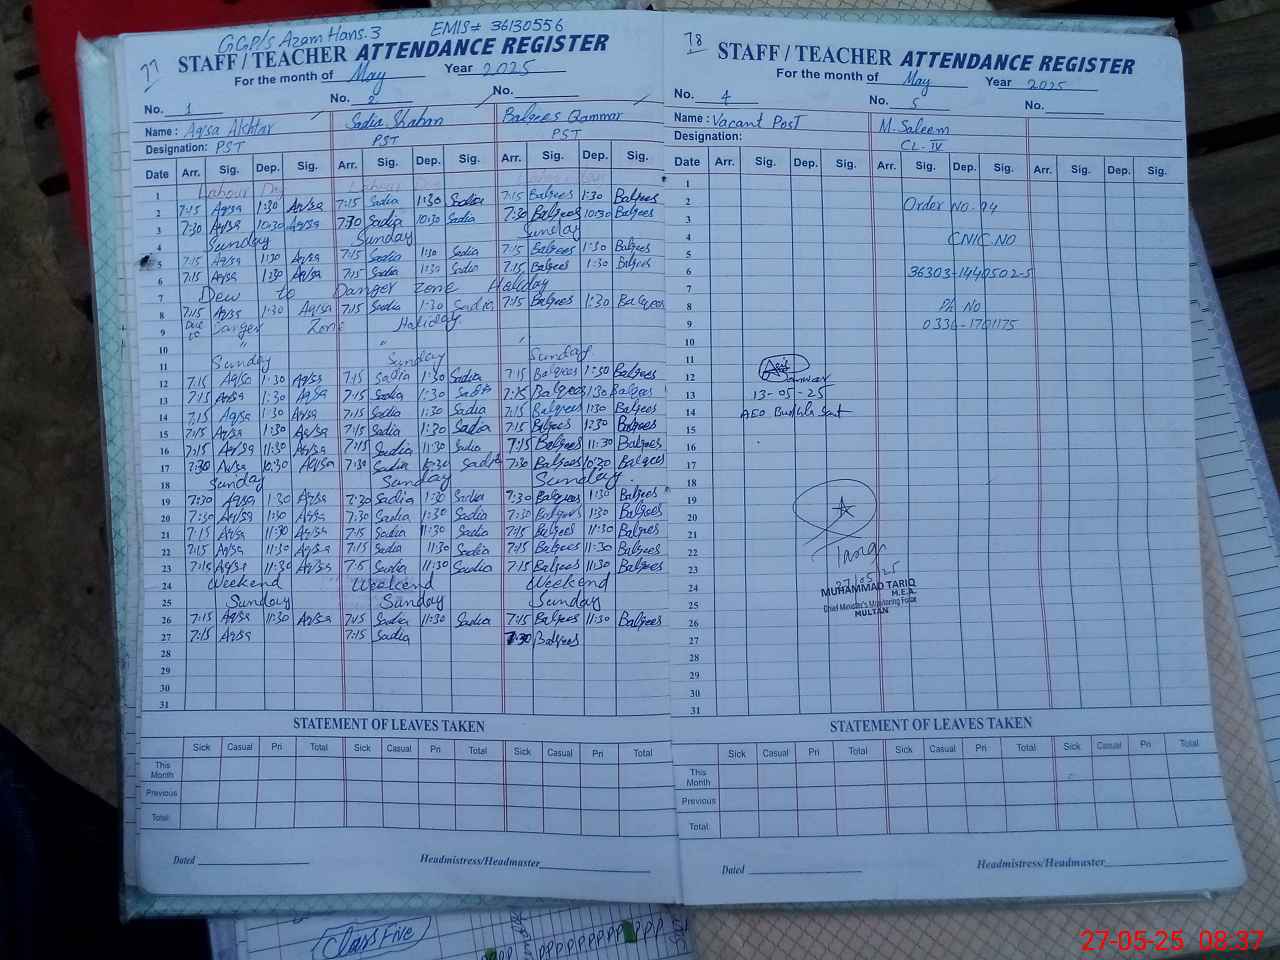 GGP/S Azam Hans.3 EMIS# 36130556
77 STAFF / TEACHER ATTENDANCE REGISTER
For the month of May Year 2025
No. 1 No. 2 No.
Name : Aqsa Akhtar Sadia Shaban Balqees Qammar
Designation: PST PST PST
Date Arr. Sig. Dep. Sig. Arr. Sig. Dep. Sig. Arr. Sig. Dep. Sig.
1 Labour Day Labour Day
2 7:15 Aqsa 1:30 Aqsa 7:15 Sadia 1:30 Sadia 7:15 Balqees 1:30 Balqees
3 7:30 Aqsa 10:30 Aqsa 7:30 Sadia 10:30 Sadia 7:30 Balqees 10:30 Balqees
4 Sunday Sunday Sunday
5 7:15 Aqsa 1:30 Aqsa 7:15 Sadia 1:30 Sadia 7:15 Balqees 1:30 Balqees
6 7:15 Aqsa 1:30 Aqsa 7:15 Sadia 1:30 Sadia 7:15 Balqees 1:30 Balqees
7 Dew to Danger Zone Holiday
8 7:15 Aqsa 1:30 Aqsa 7:15 Sadia 1:30 Sadia 7:15 Balqees 1:30 Balqees
9 Due to Danger Zone Holiday
10 " " "
11 Sunday Sunday Sunday
12 7:15 Aqsa 1:30 Aqsa 7:15 Sadia 1:30 Sadia 7:15 Balqees 1:30 Balqees
13 7:15 Aqsa 1:30 Aqsa 7:15 Sadia 1:30 Sadia 7:15 Balqees 1:30 Balqees
14 7:15 Aqsa 1:30 Aqsa 7:15 Sadia 1:30 Sadia 7:15 Balqees 1:30 Balqees
15 7:15 Aqsa 1:30 Aqsa 7:15 Sadia 1:30 Sadia 7:15 Balqees 1:30 Balqees
16 7:15 Aqsa 11:30 Aqsa 7:15 Sadia 11:30 Sadia 7:15 Balqees 11:30 Balqees
17 7:30 Aqsa 10:30 Aqsa 7:30 Sadia 10:30 Sadia 7:30 Balqees 10:30 Balqees
18 Sunday Sunday Sunday
19 7:30 Aqsa 1:30 Aqsa 7:30 Sadia 1:30 Sadia 7:30 Balqees 1:30 Balqees
20 7:30 Aqsa 1:30 Aqsa 7:30 Sadia 1:30 Sadia 7:30 Balqees 1:30 Balqees
21 7:15 Aqsa 11:30 Aqsa 7:15 Sadia 11:30 Sadia 7:15 Balqees 11:30 Balqees
22 7:15 Aqsa 11:30 Aqsa 7:15 Sadia 11:30 Sadia 7:15 Balqees 11:30 Balqees
23 7:15 Aqsa 11:30 Aqsa 7:15 Sadia 11:30 Sadia 7:15 Balqees 11:30 Balqees
24 Weekend Weekend Weekend
25 Sunday Sunday Sunday
26 7:15 Aqsa 11:30 Aqsa 7:15 Sadia 11:30 Sadia 7:15 Balqees 11:30 Balqees
27 7:15 Aqsa 7:15 Sadia 7:30 Balqees
28
29
30
31
STATEMENT OF LEAVES TAKEN
Sick Casual Pri Total Sick Casual Pri Total Sick Casual Pri Total
This Month
Previous
Total:
Dated Headmistress/Headmaster
78 STAFF / TEACHER ATTENDANCE REGISTER
For the month of May Year 2025
No. 4 No. 5 No.
Name : Vacant Post M. Saleem
Designation: CL-IV
Date Arr. Sig. Dep. Sig. Arr. Sig. Dep. Sig. Arr. Sig. Dep. Sig.
1
2 Order No. 94
3
4 CNIC NO
5
6 36303-1449502-5
7
8 Ph No
9 0334-1701175
10
11
12
13 13-05-25
14 AEO
15
16
17
18
19
20
21
22 Tariq
23 27/05/25
24 MUHAMMAD TARIQ
M.E.A.
25 Chief Minister's Monitoring Force
MULTAN
26
27
28
29
30
31
STATEMENT OF LEAVES TAKEN
Sick Casual Pri Total Sick Casual Pri Total Sick Casual Pri Total
This Month
Previous
Total:
Dated Headmistress/Headmaster
Class Five
PPPPPPPP PPP
27-05-25 08:37